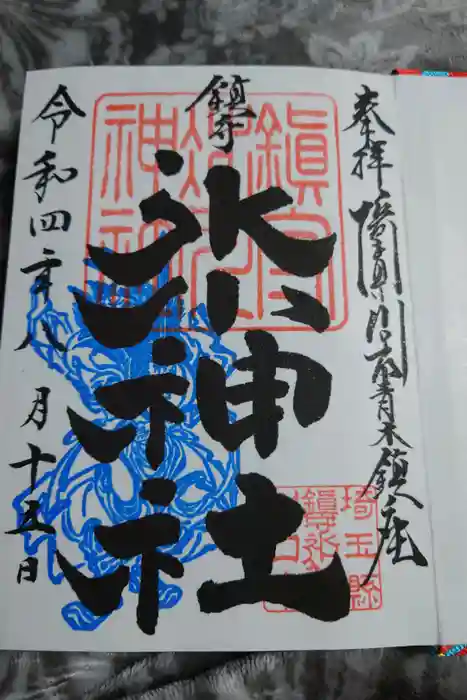 奉拝
埼玉県川口市青木鎮座
鎮守
氷川神社
令和四年八月十五日
鎮守氷川神社
埼玉縣